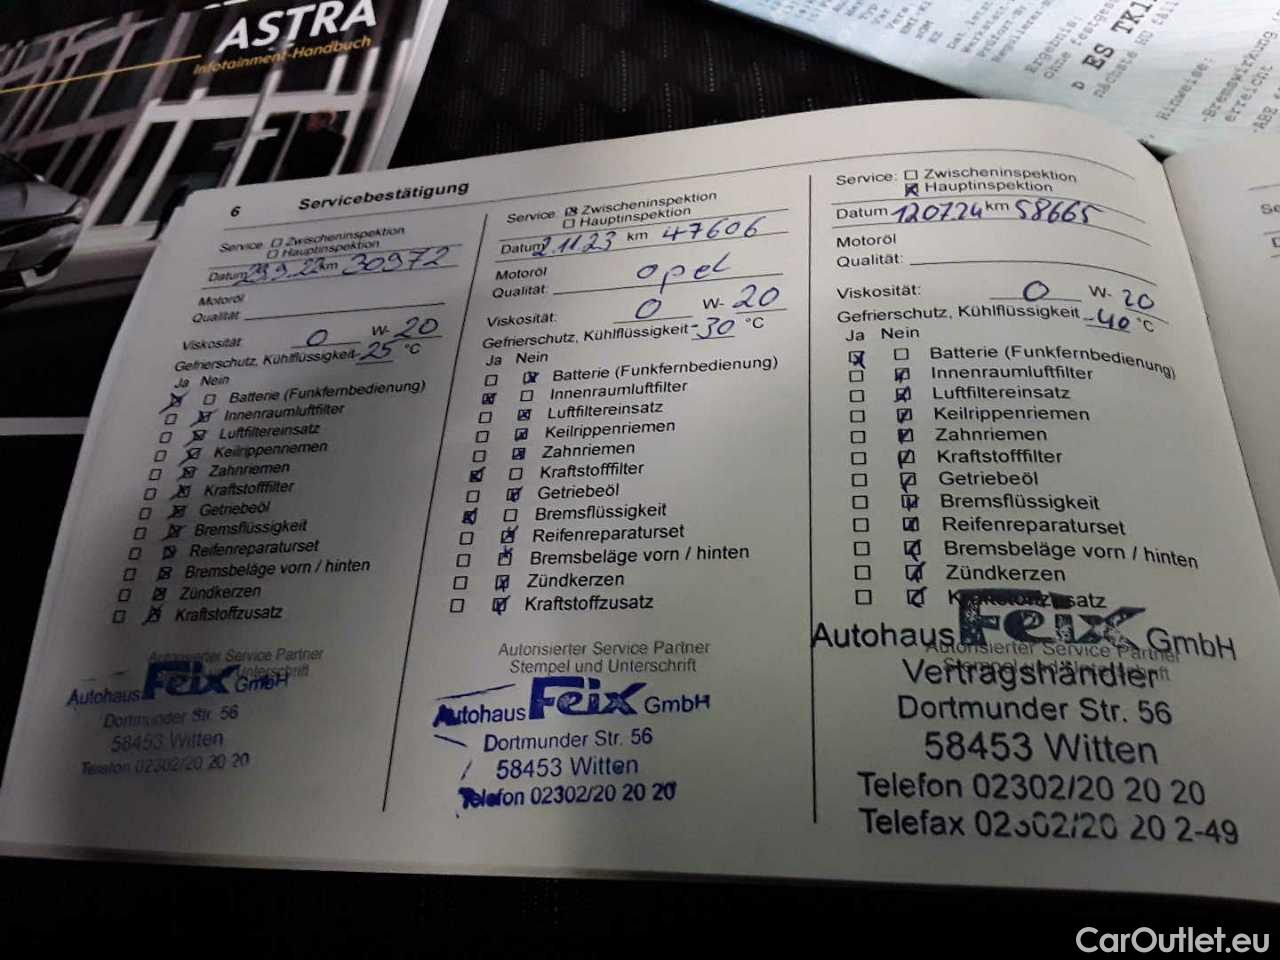 ASTRA
Infotainment-Handbuch
Ergebnis:
D ES TK1
nächste HU fäll
Hinweise:
-Bremswirkung
erreicht
-ABE
6 Servicebestätigung
Service: Zwischeninspektion
Hauptinspektion
Datum 29.9.22 km 30972
Motoröl
Qualität:
Viskosität: 0 W- 20
Gefrierschutz, Kühlflüssigkeit -25 °C
Ja Nein
Batterie (Funkfernbedienung)
Innenraumluftfilter
Luftfiltereinsatz
Keilrippenriemen
Zahnriemen
Kraftstofffilter
Getriebeöl
Bremsflüssigkeit
Reifenreparaturset
Bremsbeläge vorn / hinten
Zündkerzen
Kraftstoffzusatz
Autorisierter Service Partner
Stempel und Unterschrift
Autohaus Feix GmbH
Dortmunder Str. 56
58453 Witten
Telefon 02302/20 20 20
Service: Zwischeninspektion
Hauptinspektion
Datum 2.11.23 km 47606
Motoröl
Qualität: opel
Viskosität: 0 W- 20
Gefrierschutz, Kühlflüssigkeit -30 °C
Ja Nein
Batterie (Funkfernbedienung)
Innenraumluftfilter
Luftfiltereinsatz
Keilrippenriemen
Zahnriemen
Kraftstofffilter
Getriebeöl
Bremsflüssigkeit
Reifenreparaturset
Bremsbeläge vorn / hinten
Zündkerzen
Kraftstoffzusatz
Autorisierter Service Partner
Stempel und Unterschrift
Autohaus Feix GmbH
Dortmunder Str. 56
58453 Witten
Telefon 02302/20 20 20
Service: Zwischeninspektion
Hauptinspektion
Datum 120724 km 58665
Motoröl
Qualität:
Viskosität: 0 W- 20
Gefrierschutz, Kühlflüssigkeit -40 °C
Ja Nein
Batterie (Funkfernbedienung)
Innenraumluftfilter
Luftfiltereinsatz
Keilrippenriemen
Zahnriemen
Kraftstofffilter
Getriebeöl
Bremsflüssigkeit
Reifenreparaturset
Bremsbeläge vorn / hinten
Zündkerzen
Kraftstoffzusatz
Autohaus Feix GmbH
Autorisierter Service Partner
Vertragshändler
Dortmunder Str. 56
58453 Witten
Telefon 02302/20 20 20
Telefax 02302/20 20 2-49
CarOutlet.eu